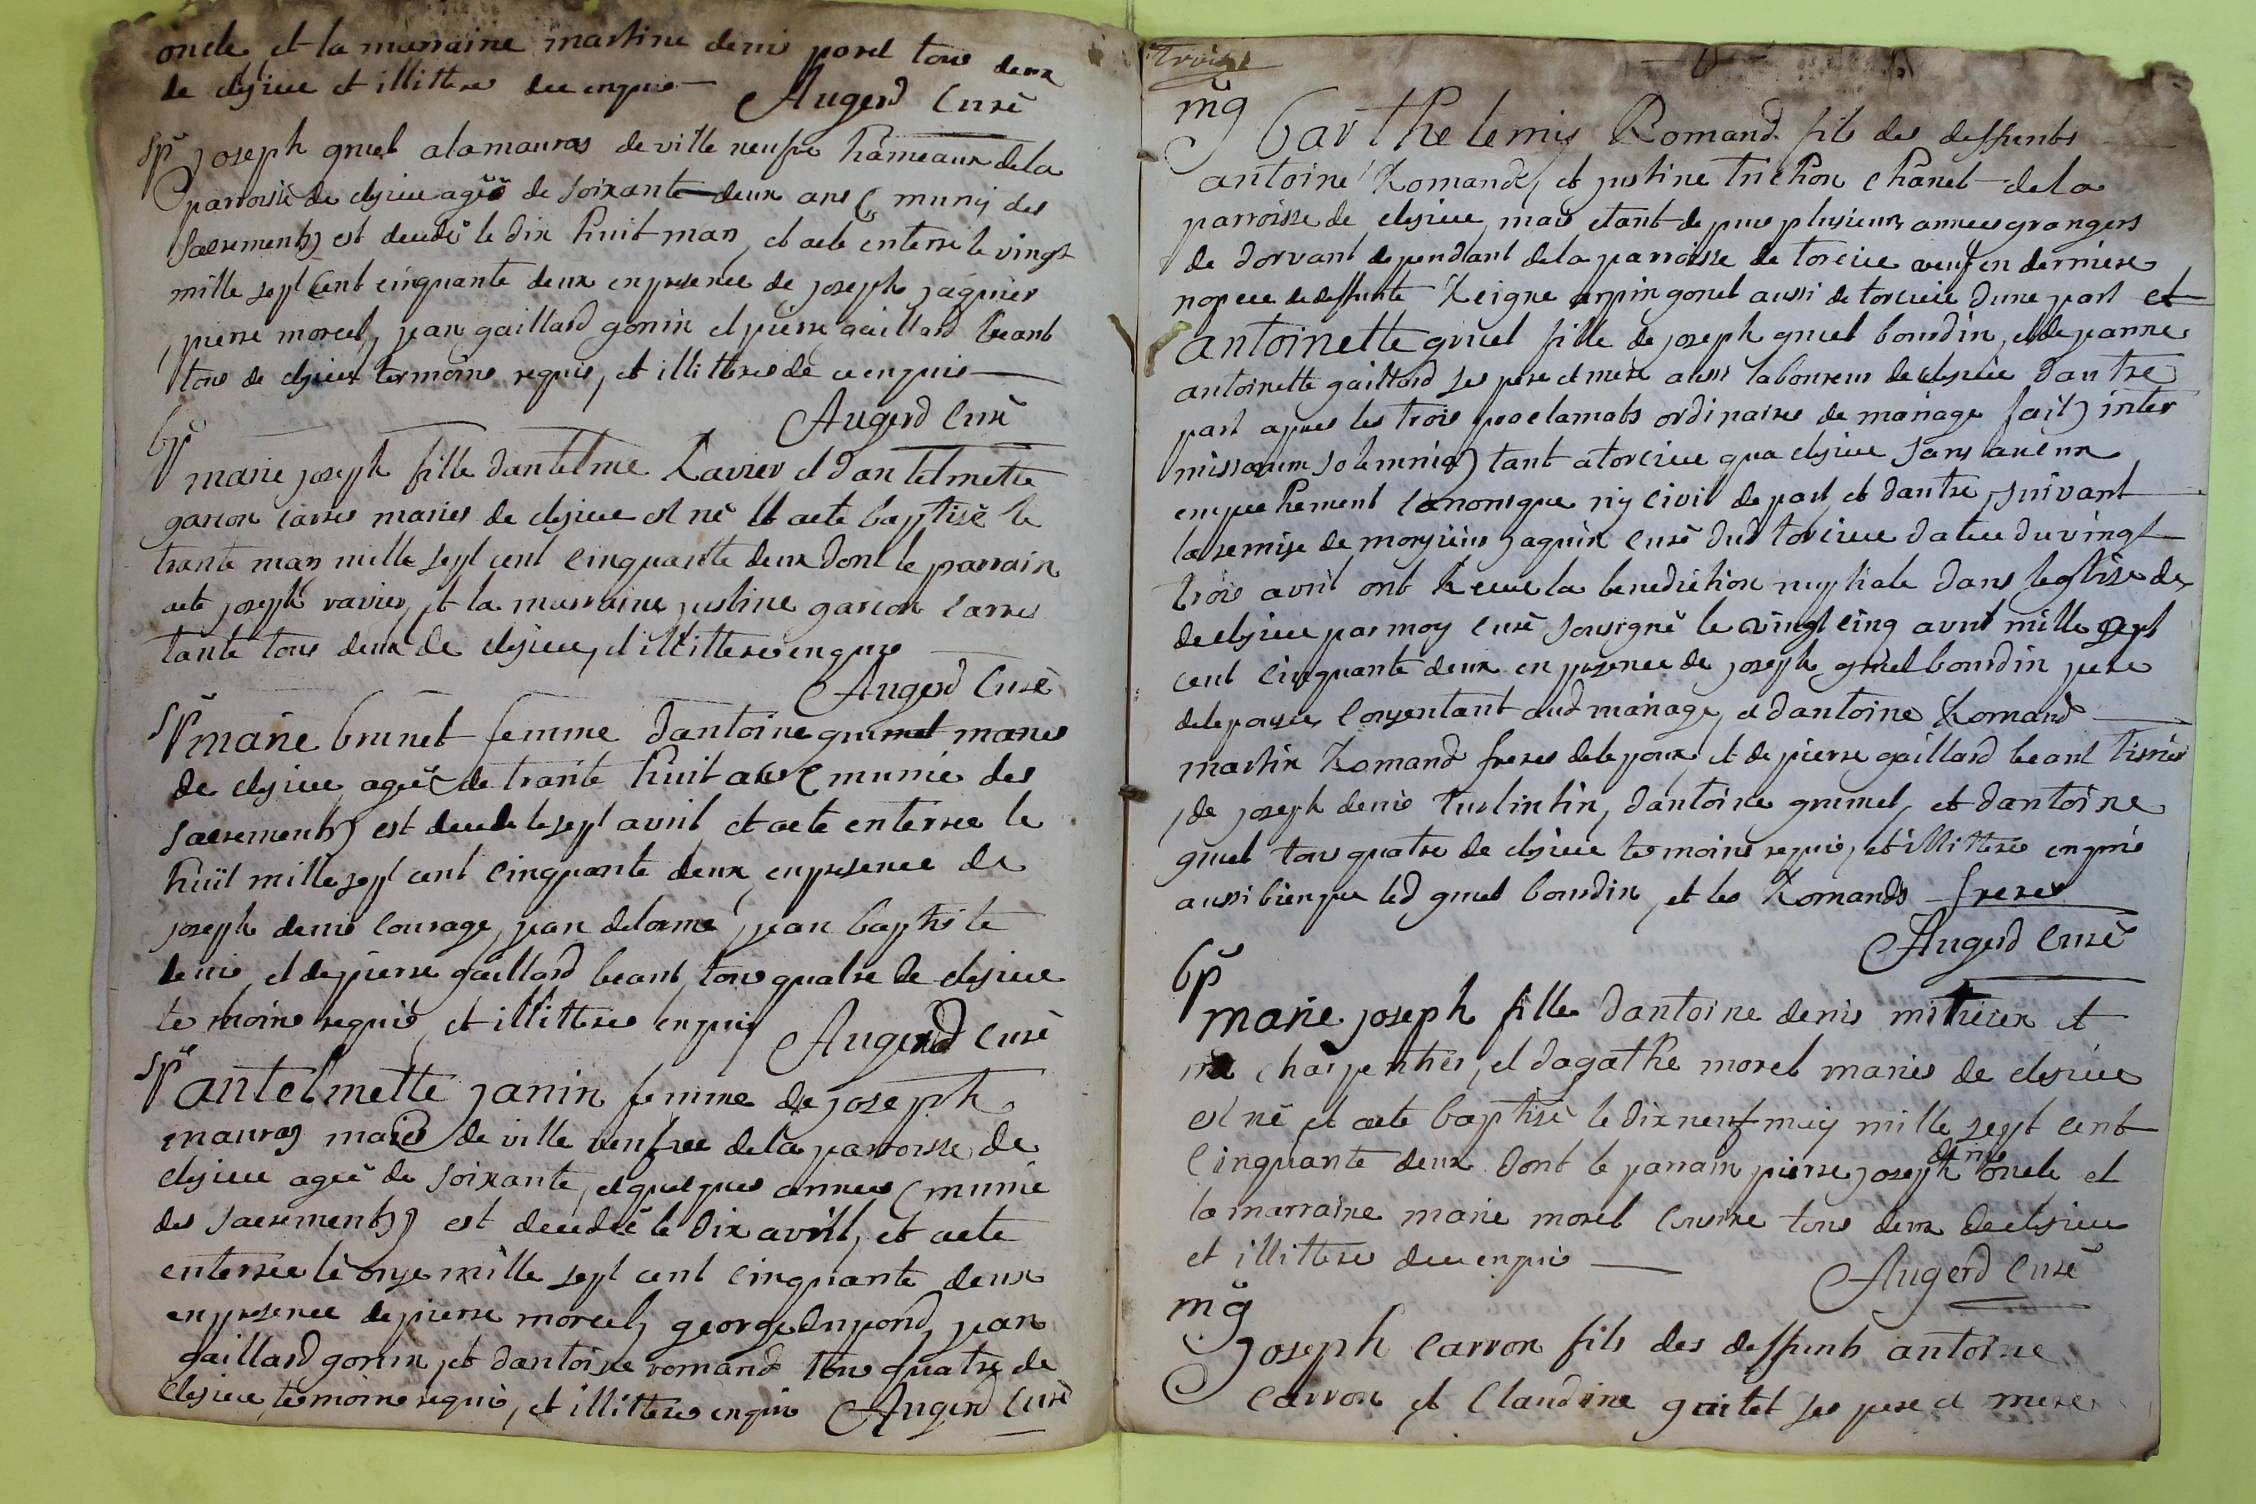 oncle et la marraine martine denis porel tous deux
de clesieu et illittere de ce enquis Augerd Curé
spr joseph gruel alamauras de ville neufve hameaux de la
parroisse de clesieu agéé de soixante deux ans (muny des
sacrements) est decedé le dix huit mars, et aeté enterre le vingt
mille sept cent cinquante deux en presence de joseph jaguier
pierre morcel, jean gaillard gonin et pierre gaillard beant
tous de clesieu termoins requis, et illitteres de ce enquis
Augerd Curé
bp
marie joseph fille dantelme Ravier et dantelmette
garcon carres mariés de clesieu est né et aeté baptisé le
trante mars mille sept cent cinquante deux dont le parrain
aeté joseph ravier, et la marraine justine garcon carres
tante tous deux de clesieu, et illitteres enquis
Augerd Curé
spr marie brunet femme dantoine grumel mariés
de clesieu ageé de trante huit ans (munie des
sacrements) est decedé le sept avril et aeté enterree le
huit mille sept cent cinquante deux, en presence de
joseph denis courage, jean delorme, jean baptiste
denis, et de pierre gaillard beant, tous quatre de clesieu
temoins requis, et illitteres enquis Augerd Curé
spr antelmette janin femme de joseph
mauras mariés de ville neufve de la parroisse de
clesieu ageé de soixante, et quelques annees (munie
des sacrements) est decedée le dix avril, et aeté
enterree le onze mille sept cent cinquante deux
en presence de pierre morcel, george dupond, jean
gaillard gonin, et dantoine romand tous quatre de
clesieu, temoins requis, et illitteres enquis Augerd Curé
troise
mg
barthelemy Romand fils des deffunts
antoine Romand, et justine trichon chanel de la
parroisse de clesieu, mais etant depuis plusieurs annees grangers
de dorvant dependant de la parroisse de torcieu veuf en derniere
nopece de deffunte Reigne arpin gonet aussi de torcieu dune part et
antoinette gruel fille de joseph gruel bourdin, et de jeanne
antoinette gaillard ses pere et mere aussi laboureurs de clesieu dautre
part apres les trois proclamats ordinaires de mariage fait) inter
missarum solemnia) tant a torcieu qua clesieu sans aucun
empechement canonique ny civil de part et dautre, suivant
la remise de monsieur jaguin curé dud torcieu datee du vingt
trois avril ont Receu la benediction nuptiale dans leglise de
de clesieu par moy curé sousigné le vingt cinq avril mille sept
cent cinquante deux en presence de joseph gruel bourdin pere
de lepouse, consentant aud mariage, et dantoine Romand
martin Romand freres de lepoux, et de pierre gaillard beant tisser
, de joseph denis tuslintin, dantoine grumel, et dantoine
gruel tous quatre de clesieu temoins requis, et illitteres enquis
aussi bien que led gruel bourdin, et les Romands freres
Augerd Curé
bp
marie joseph fille dantoine denis mitieux et
charpentier, et dagathe morel mariés de clesieu
est né et aeté baptisé le dix neuf may mille sept cent
denis
cinquante deux dont le parrain pierre joseph oncle et
la marraine marie morel cousine tous deux de clesieu
et illitteres de ce enquis Augerd Curé
mg
joseph carron fils des deffunts antoine
carron et claudine guitet ses pere et mere